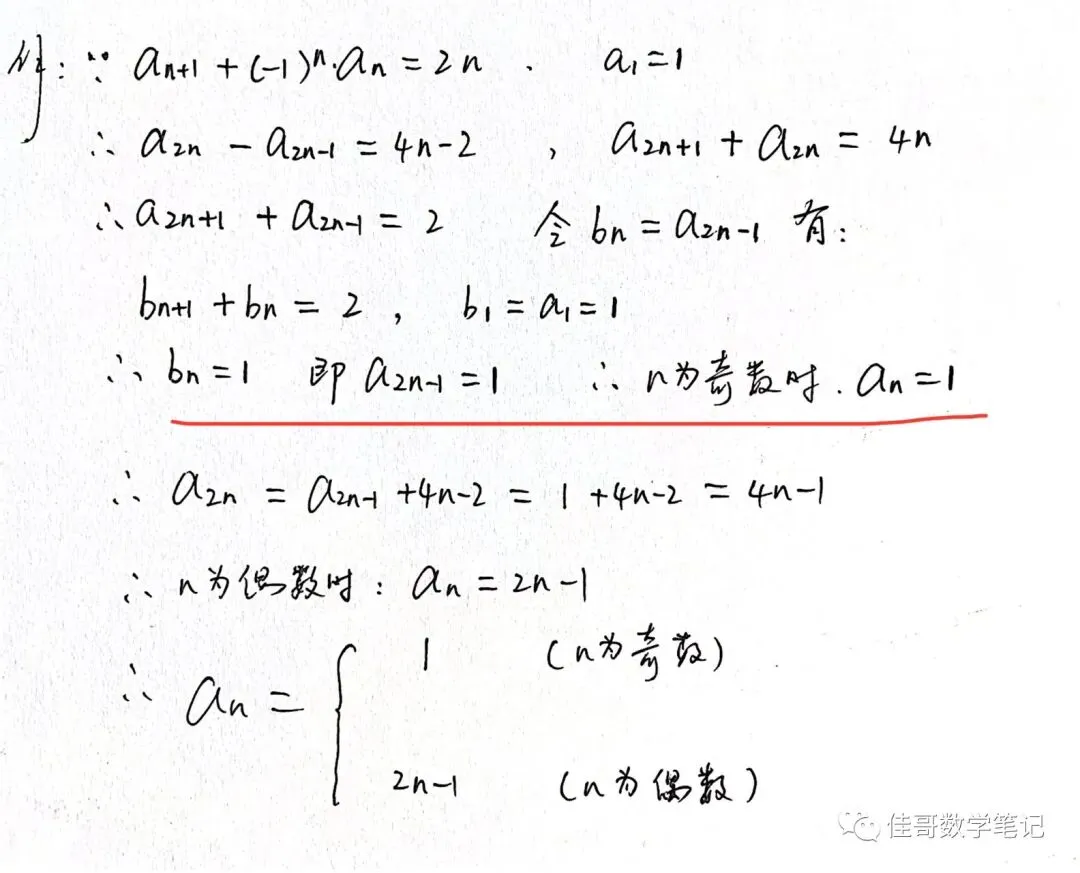 解: ∵ aₙ₊₁ + (-1)ⁿ·aₙ = 2n . a₁ = 1
∴ a₂ₙ - a₂ₙ₋₁ = 4n-2 , a₂ₙ₊₁ + a₂ₙ = 4n
∴ a₂ₙ₊₁ + a₂ₙ₋₁ = 2 令 bₙ = a₂ₙ₋₁ 有:
bₙ₊₁ + bₙ = 2 , b₁ = a₁ = 1
∴ bₙ = 1 即 a₂ₙ₋₁ = 1 ∴ n为奇数时. aₙ = 1
∴ a₂ₙ = a₂ₙ₋₁ + 4n-2 = 1 + 4n-2 = 4n-1
∴ n为偶数时: aₙ = 2n-1
∴ aₙ = { 1 (n为奇数)
2n-1 (n为偶数)
佳哥数学笔记